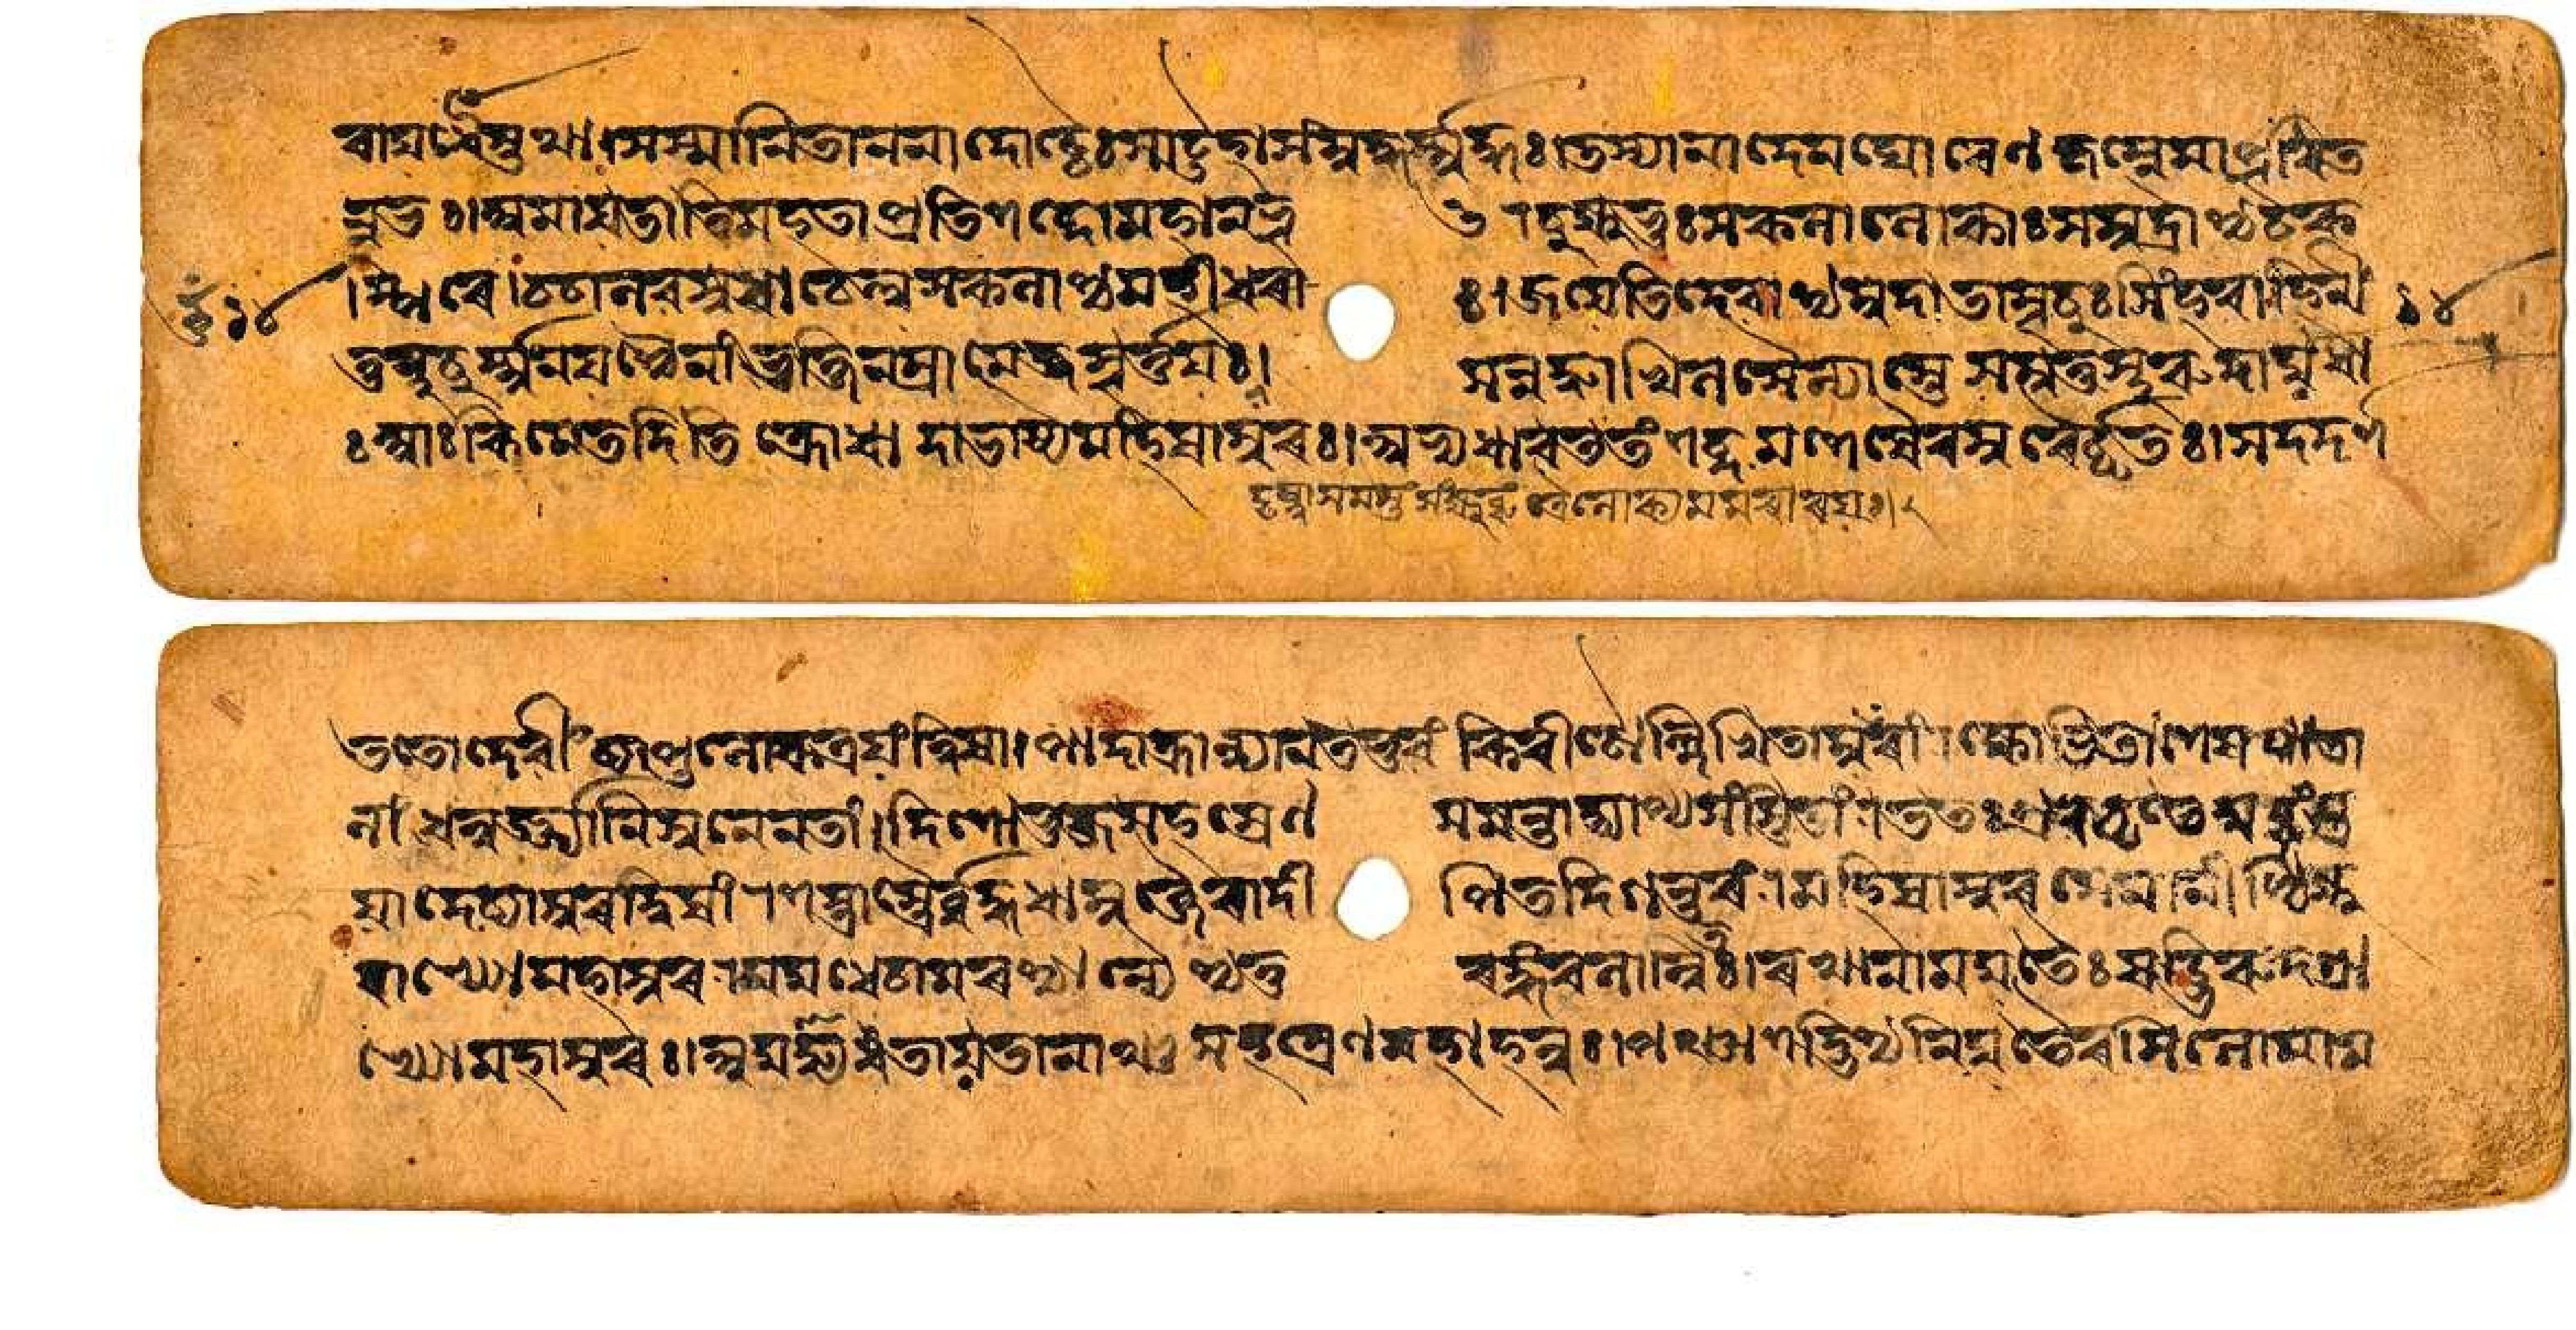 ৰায়ুধৈস্তথা। সম্মানিতা ননাদোচ্চৈঃ সাট্টহাসং মুহুর্ম্মুহুঃ। তস্যা নাদেন ঘোৰেণ কৃৎস্নমাপূৰিত
ন্নভঃ। অমায়তাতিমহতা প্ৰতিশব্দো মহানভূৎ। চুক্ষুভুঃ সকলা লোকাঃ সমুদ্ৰাশ্চ চক
ম্পিৰে। চচাল বসুধা চেলুঃ সকলাশ্চ মহীধৰাঃ। জয়েতি দেবাশ্চ মুদা তামূচুঃ সিংহবাহিনীং
১৪
১৪
তুষ্টুবুর্ম্মুনয়শ্চৈনাং ভক্তিনম্ৰাত্মমূর্ত্তয়ঃ। সন্নদ্ধাখিলসৈন্যাস্তে সমুত্তস্থুৰুদায়ুধা
ঃ। আঃ কিমেতদিতি ক্ৰোধাদাভাষ্য মহিষাসুৰঃ। অভ্যধাবত তং শব্দমশেষৈৰসুৰৈর্ব্বৃতঃ। স দদর্শ
দৃষ্ট্বা সমস্তং সংক্ষুব্ধং ত্ৰৈলোক্যমমৰাৰয়ঃ। ২
ততো দেবীং ব্যাপ্তলোকত্ৰয়াং ত্বিষা। পাদাক্ৰান্ত্যা নতভুবং কিৰীটোল্লিখিতাম্বৰাং। ক্ষোভিতাশেষপাতা
লাং ধনুর্জ্যানিঃস্বনেন তাং। দিশো ভুজসহস্ৰেণ সমন্তাদ্ব্যাপ্য সংস্থিতাং। ততঃ প্ৰববৃতে যুদ্ধং ত
য়া দেব্যা সুৰদ্বিষাং। শস্ত্ৰাস্ত্ৰৈর্ব্বহুধা মুক্তৈৰাদীপিতদিগন্তৰং। মহিষাসুৰসেনানীশ্চিক্ষু
ৰাখ্যো মহাসুৰঃ। যুযুধে চামৰশ্চান্যৈশ্চতুৰঙ্গবলান্বিতঃ। ৰথানামযুতৈঃ ষড়্ভিৰুদগ্ৰা
খ্যো মহাসুৰঃ। অযুধ্যতাযুতানাঞ্চ সহস্ৰেণ মহাহনুঃ। পঞ্চাশদ্ভিশ্চ নিযুতৈৰসিলোমা ম